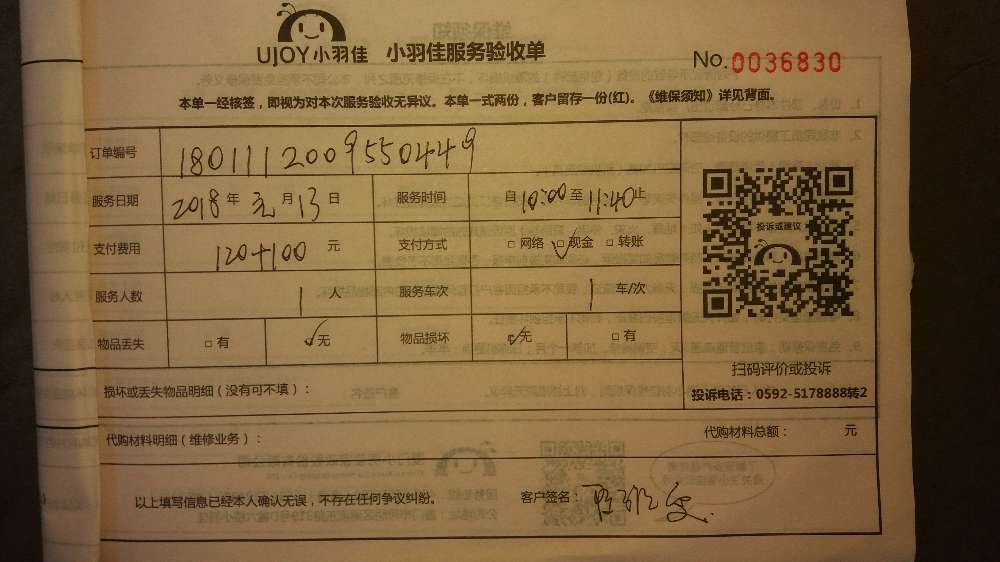 UJOY小羽佳 小羽佳服务验收单
No.0036830
本单一经核签，即视为对本次服务验收无异议。本单一式两份，客户留存一份(红)。《维保须知》详见背面。
订单编号 180111200955044​9
服务日期 2018年元月13日 服务时间 自10:00至11:40止
支付费用 120+100元 支付方式 □网络 ☑现金 □转账
服务人数 1人 服务车次 1车/次
物品丢失 □有 ☑无 物品损坏 ☑无 □有
投诉或建议
扫码评价或投诉
投诉电话：0592-5178888转2
损坏或丢失物品明细（没有可不填）：
代购材料明细（维修业务）： 代购材料总额： 元
以上填写信息已经本人确认无误，不存在任何争议纠纷。 客户签名：